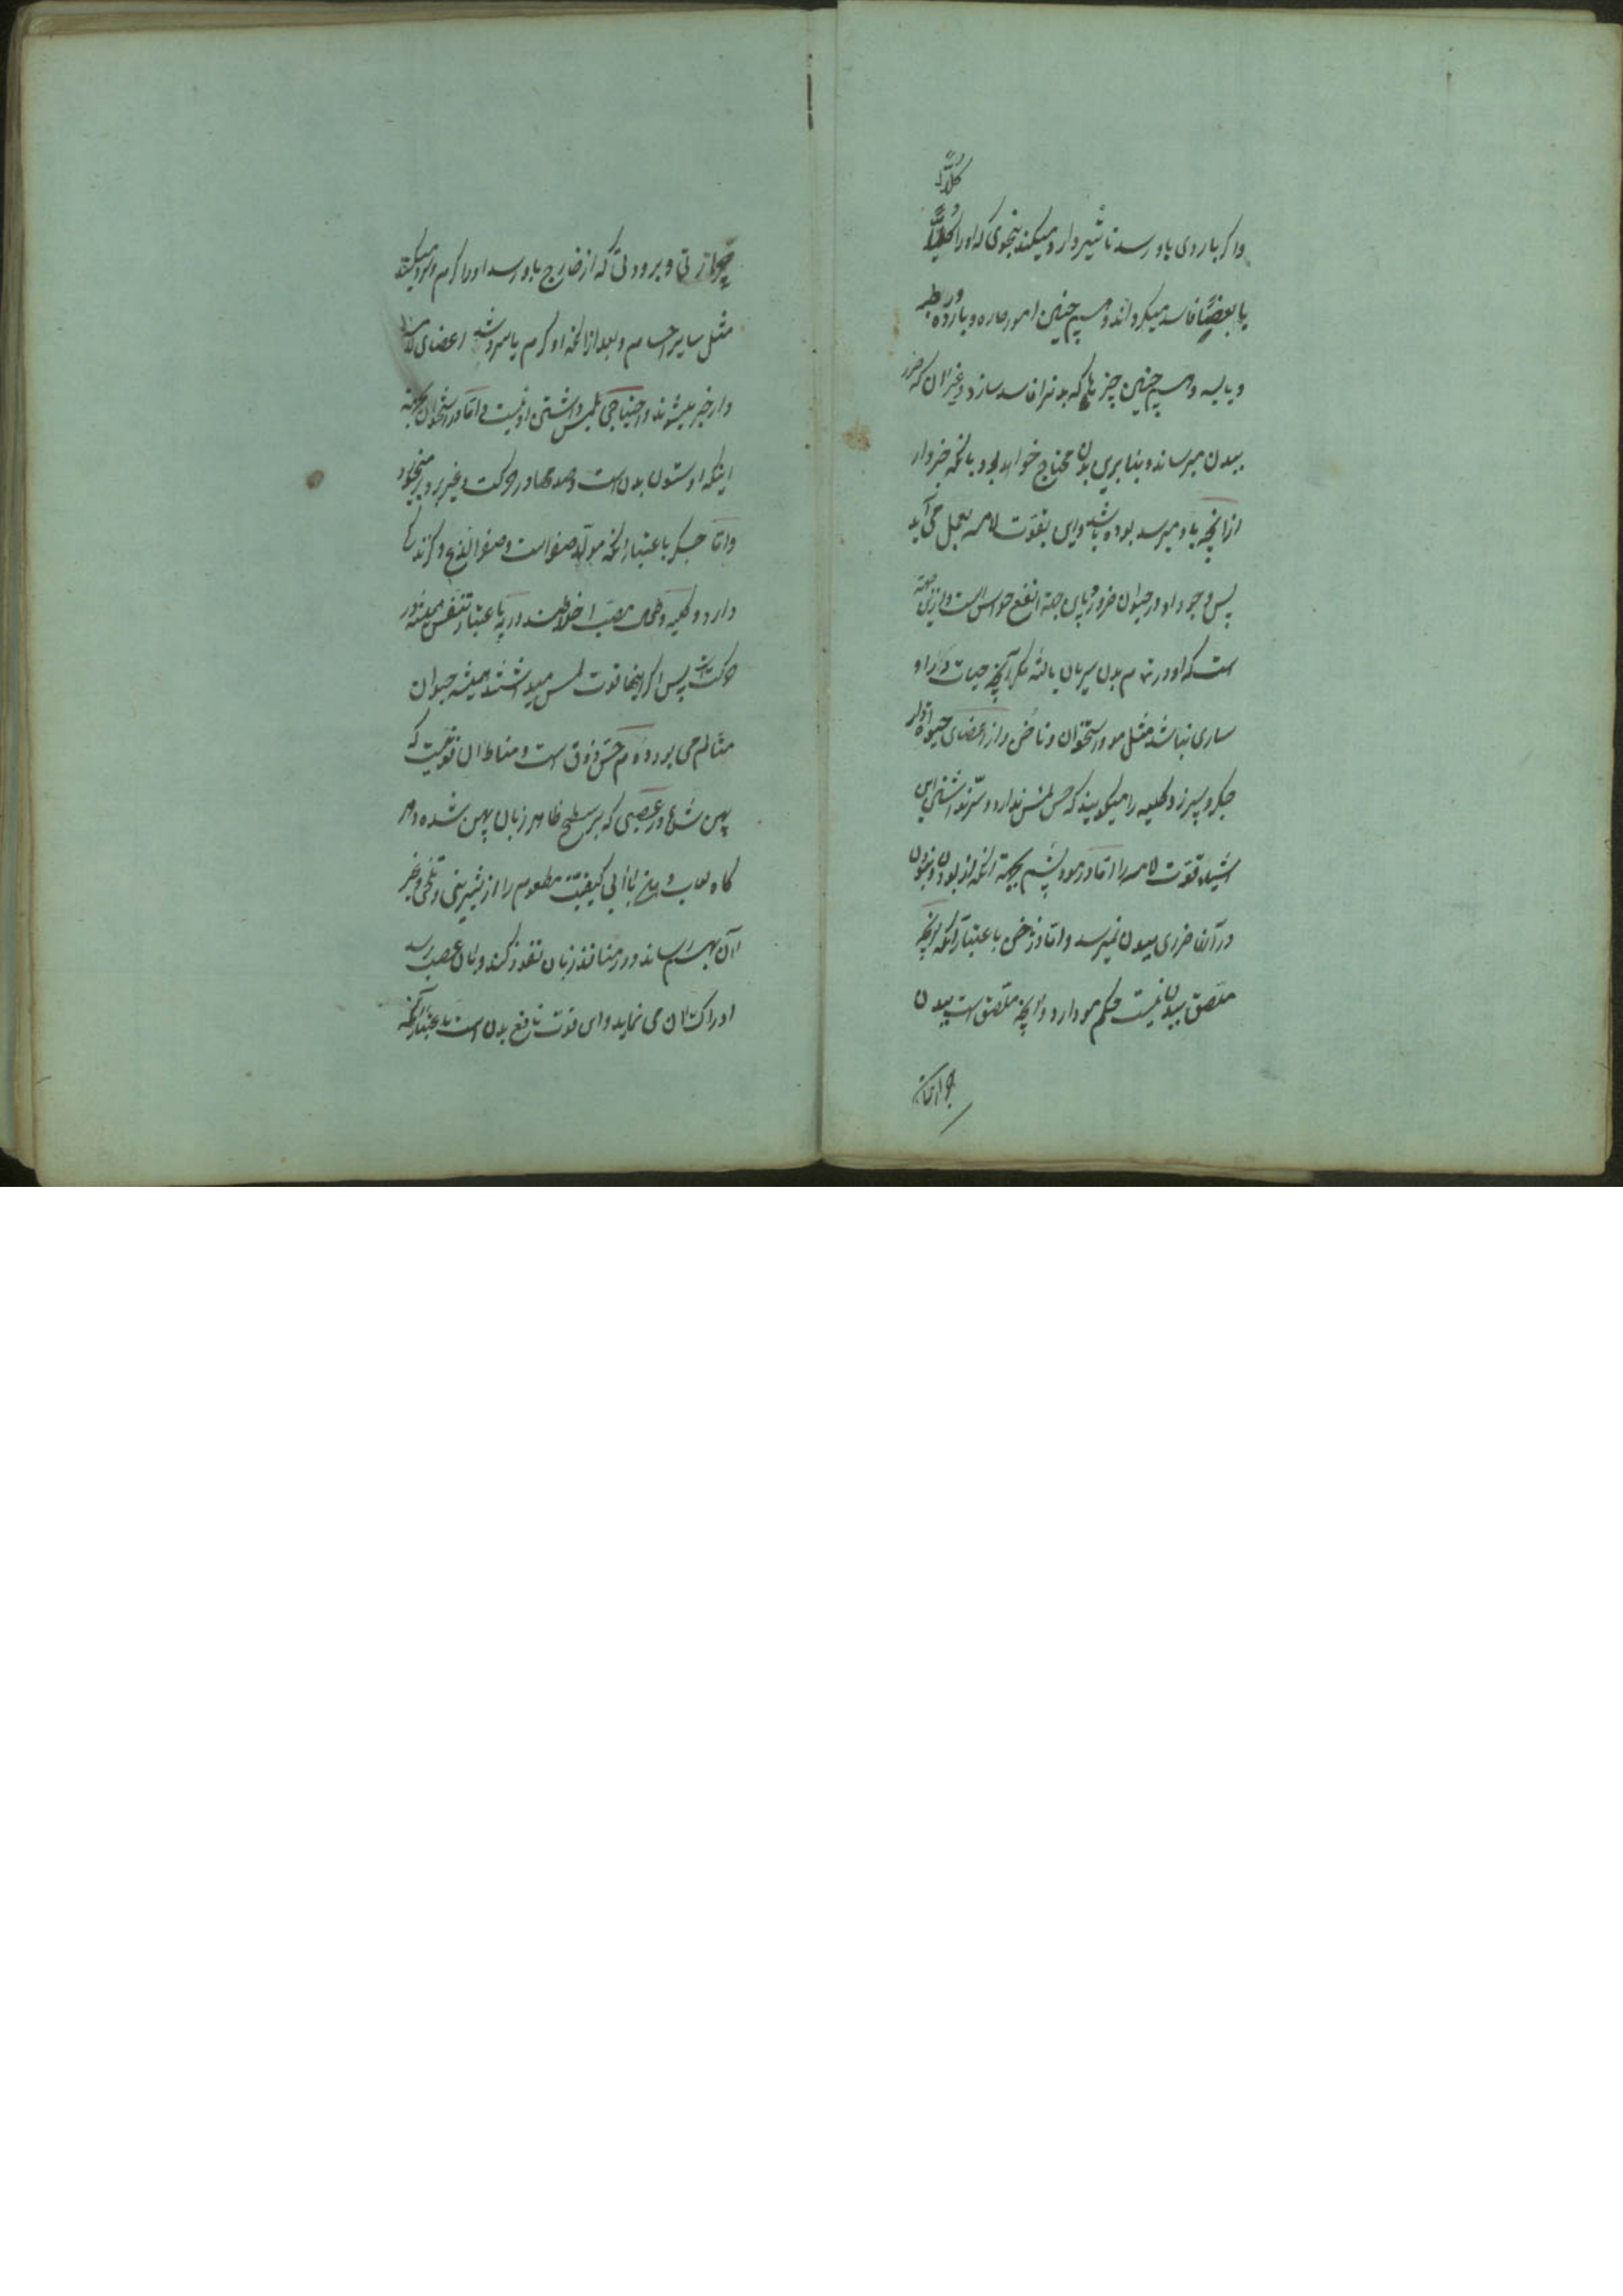 کلاً
و اگر باردی باو رسد تاثیر دارد میکند بنحوی که او را کلاً
یا بعضاً فاسد میگرداند و همچنین امور حاره و بارده و رطبه
و یابسه و همچنین چیزهای که بدنرا فاسد سازد و غیر آن که ضرر
ببدن میرساند و بنابرین بدن محتاج خواهد بود بانکه خبردار
از آنچه باو میرسد بوده باشد و این بقوت لامسه بعمل می آید
پس وجود او در حیوان ضرور و باین جهة انفع حواس است و ازین جهة
است که او در تمام بدن سریان یافته مگر آنچه حیات در او
ساری نباشد مثل مو و استخوان و ناخن و از اعضای حیوة دار
جگر و سپرز و کلیه را میگویند که حس لمس ندارد و سر نداشتن این
اشیاء قوت لامسه را اما در مو و پشم بجهة آنکه از بودن و نبودن
در آن ضرری ببدن نمیرسد و اما در ناخن باعتبار آنکه هر آنچه
ملصق ببدن نیست حکم مو دارد و آنچه ملصق است ببدن
حرارتی و برودتی که از خارج باو رسد او را گرم و سرد میکند
مثل سایر اجسام و بعد از آنکه او گرم یا سرد شد اعضای
دار خبر میشوند و احتیاجی بلمس داشتن او نیست و اما در استخوان بجهة
اینکه او ستون بدن است و صدمها در حرکت و غیره بر او میخورد
و اما جگر باعتبار آنکه مولد صفراست و صفرا لذع و گزندگی
دارد و کلیه و طحال مصب اخلاطند و ریه باعتبار تنفس همیشه در
حرکت است پس اگر اینها قوت لمس میداشتند همیشه حیوان
متألم می بود و دوم حس ذوق است و مناط آن قوتیست که
پهن شده در عصبی که بر سطح ظاهر زبان پهن شده و هر
گاه لعاب دهن کیفیت مطعوم را از شیرینی و تلخی و غیر
آن بهم رساند و در منافذ زبان نفوذ کند و بآن عصب رسد
ادراک آن می نماید و این قوت نافع بدن است باعتبار آنکه
حرارتی